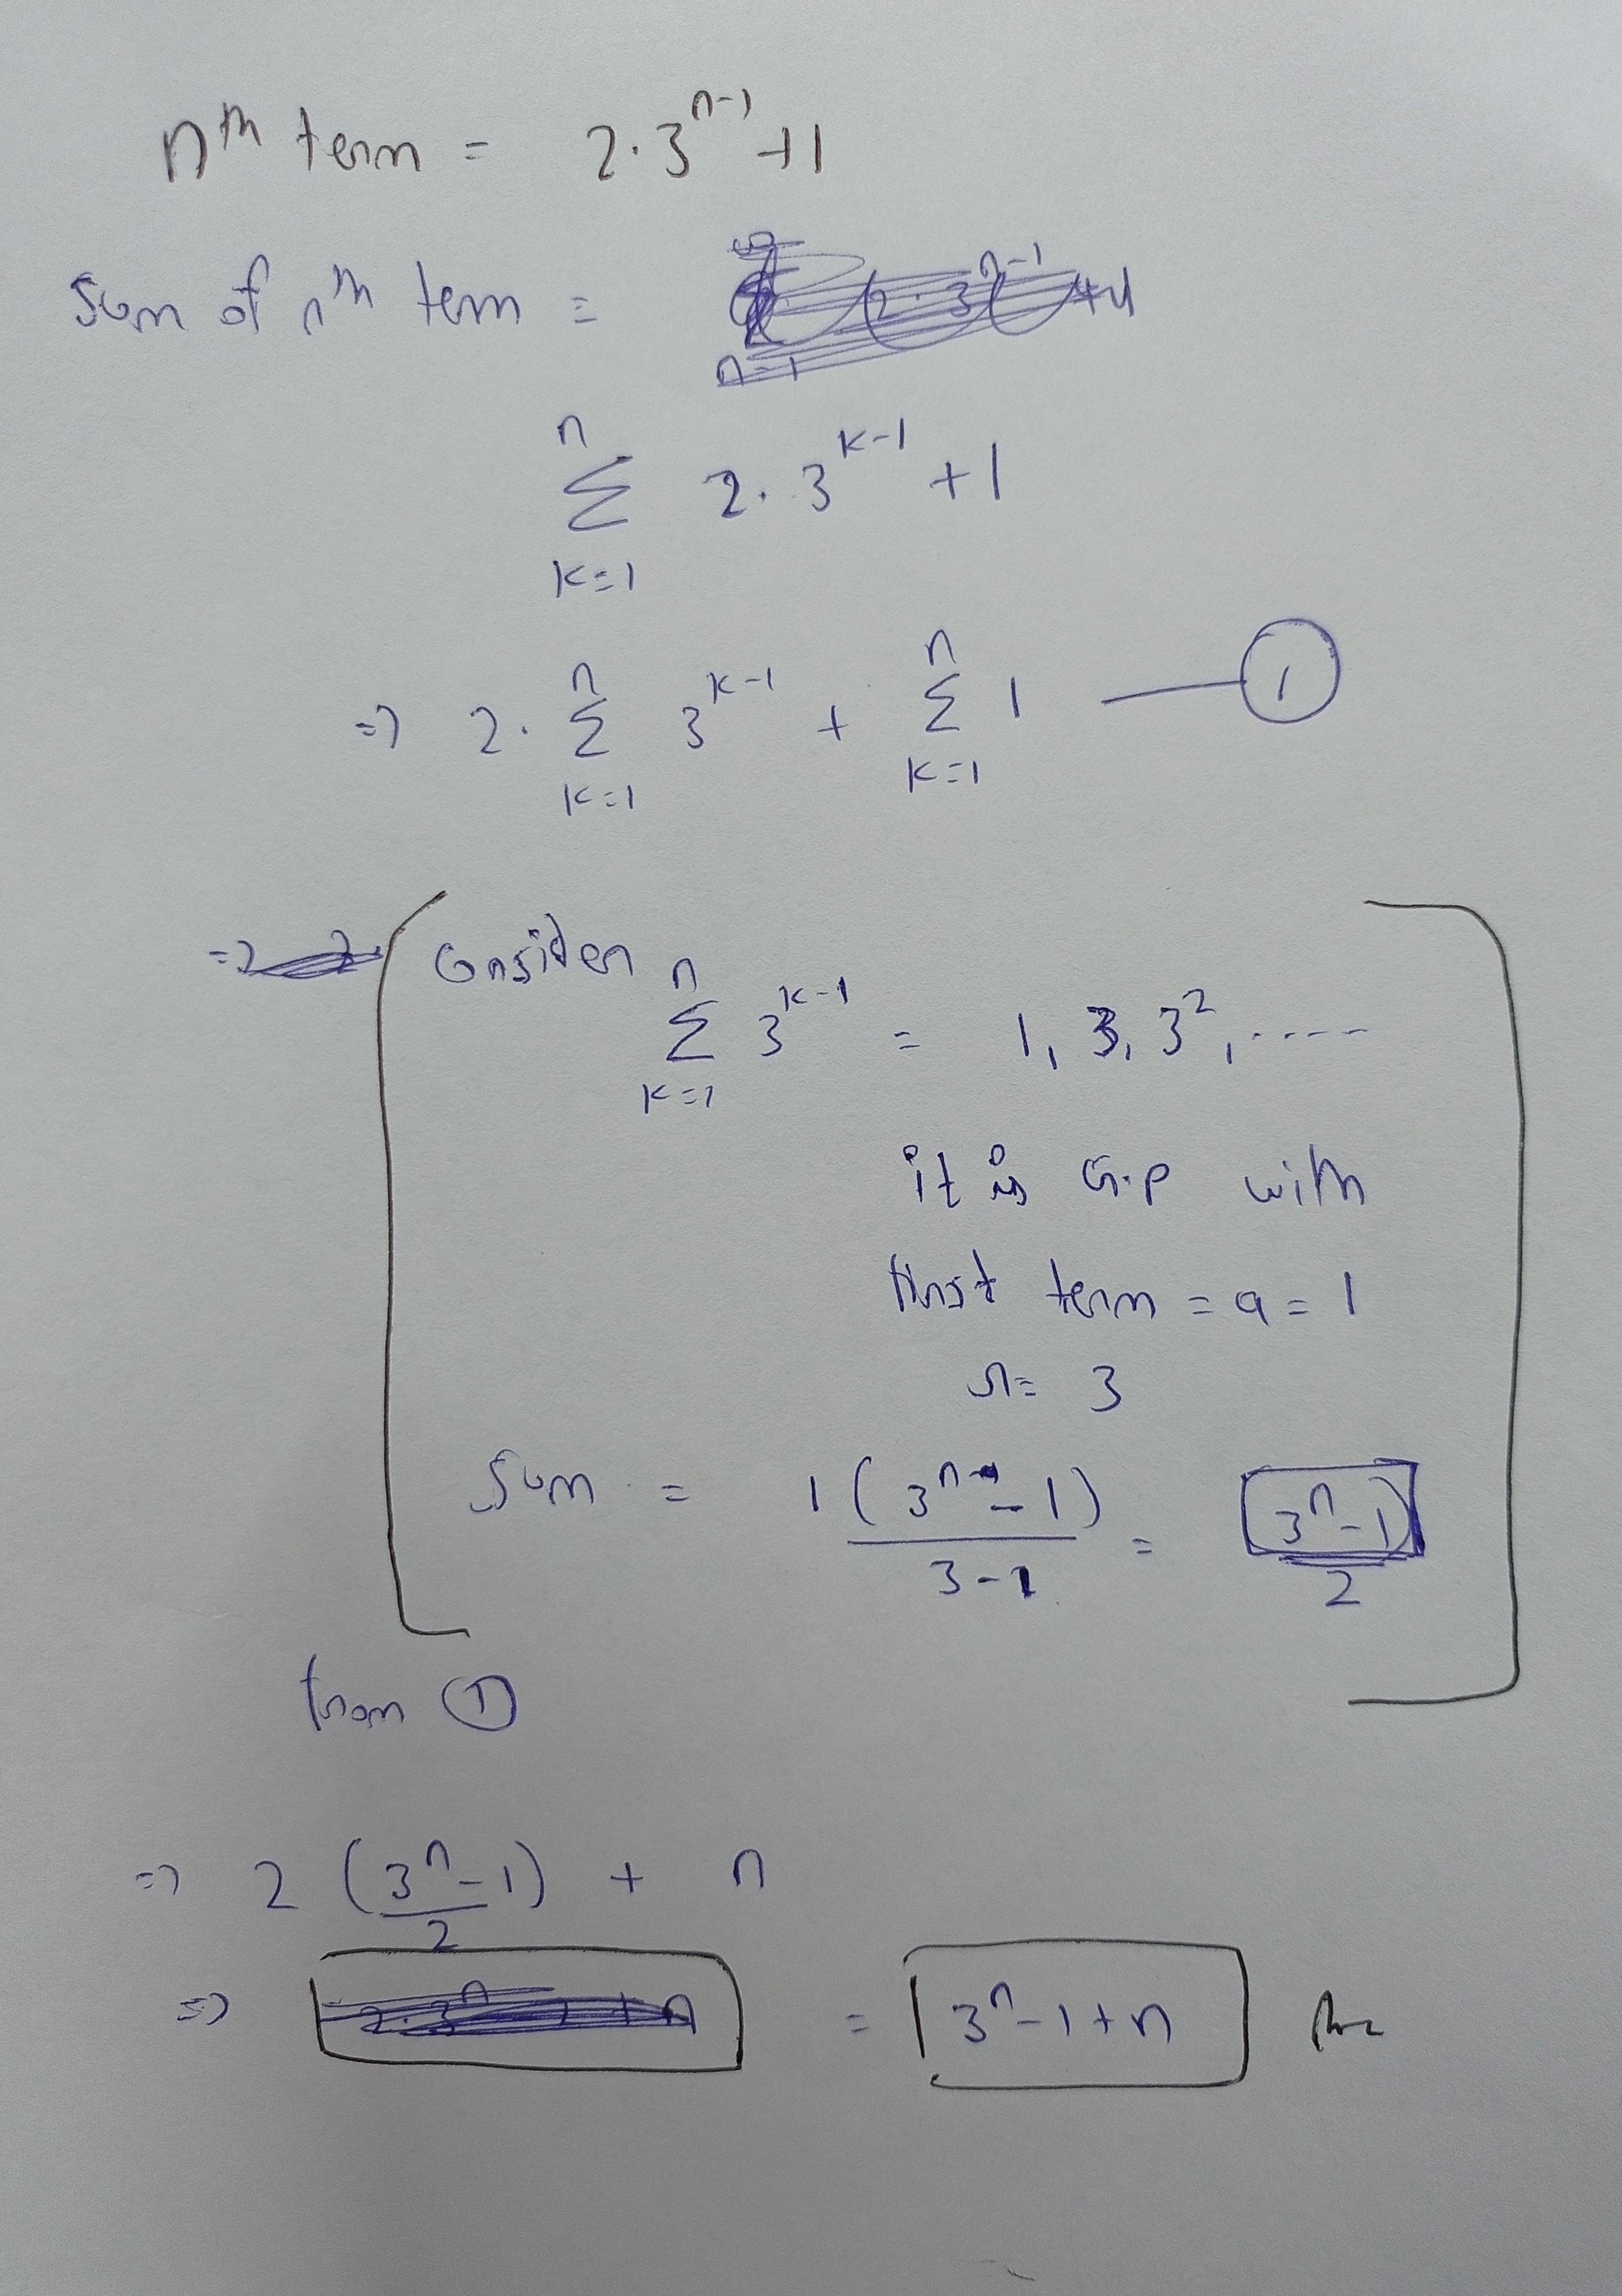 nᵗʰ term = 2·3ⁿ⁻¹+1
Sum of nᵗʰ term =
n
Σ 2·3ᵏ⁻¹ +1
k=1
=> 2· Σ 3ᵏ⁻¹ + Σ 1 — ①
n n
k=1 k=1
Consider
n
Σ 3ᵏ⁻¹ = 1, 3, 3², ----
k=1
it is G.P with
first term = a = 1
r = 3
Sum = 1(3ⁿ - 1) / 3-1 = (3ⁿ-1) / 2
from ①
=> 2 (3ⁿ-1 / 2) + n
=> = 3ⁿ-1+n